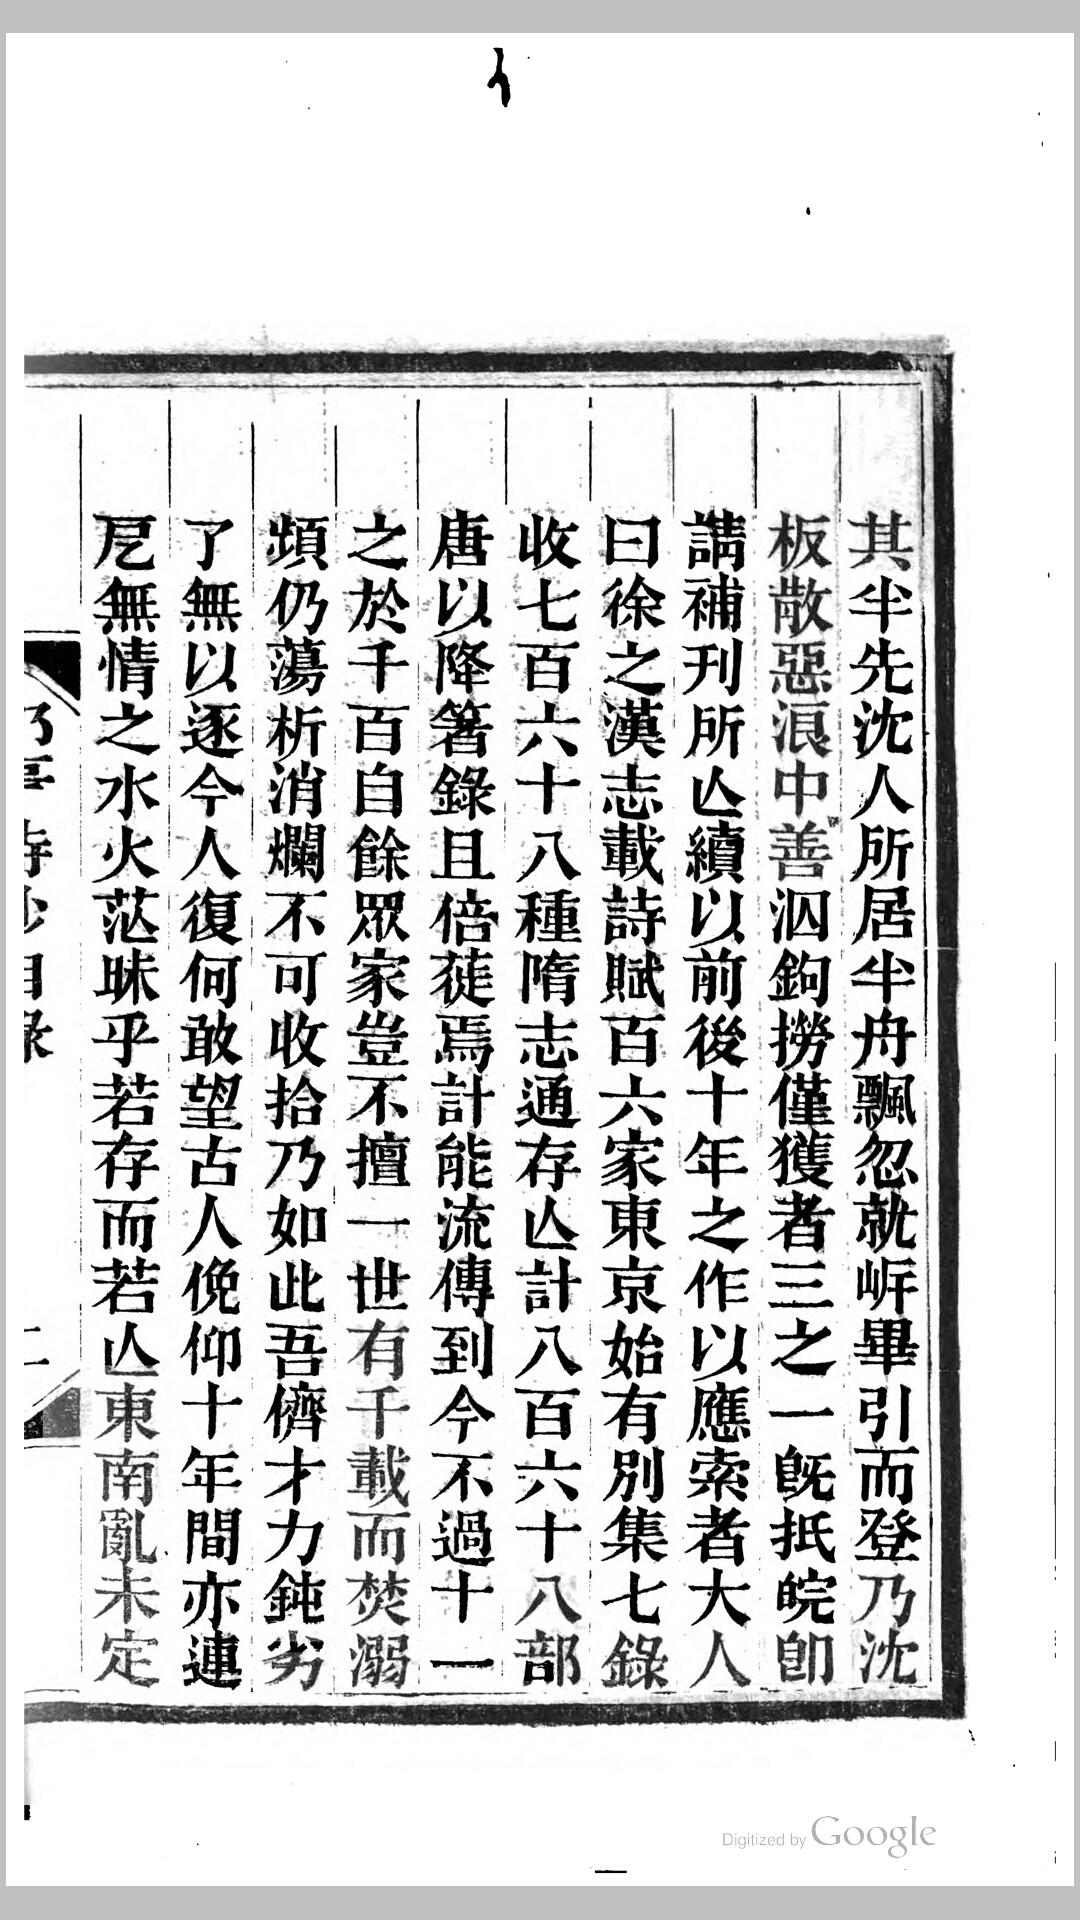 其半先沈人所居半舟飄忽就㟁畢引而登乃沈
板散惡浪中善泅鉤撈僅獲者三之一旣抵皖卽
請補刊所亾續以前後十年之作以應索者大人
曰徐之漢志載詩賦百六家東京始有別集七錄
收七百六十八種隋志通存亾計八百六十八部
唐以降箸錄且倍蓰焉計能流傳到今不過十一
之於千百自餘眾家豈不擅一世有千載而焚溺
頻仍蕩析消爛不可收拾乃如此吾儕才力鈍劣
了無以逐今人復何敢望古人俛仰十年間亦連
戹無情之水火茫昧乎若存而若亾東南亂未定
邵亭詩鈔目錄
二
Digitized by Google